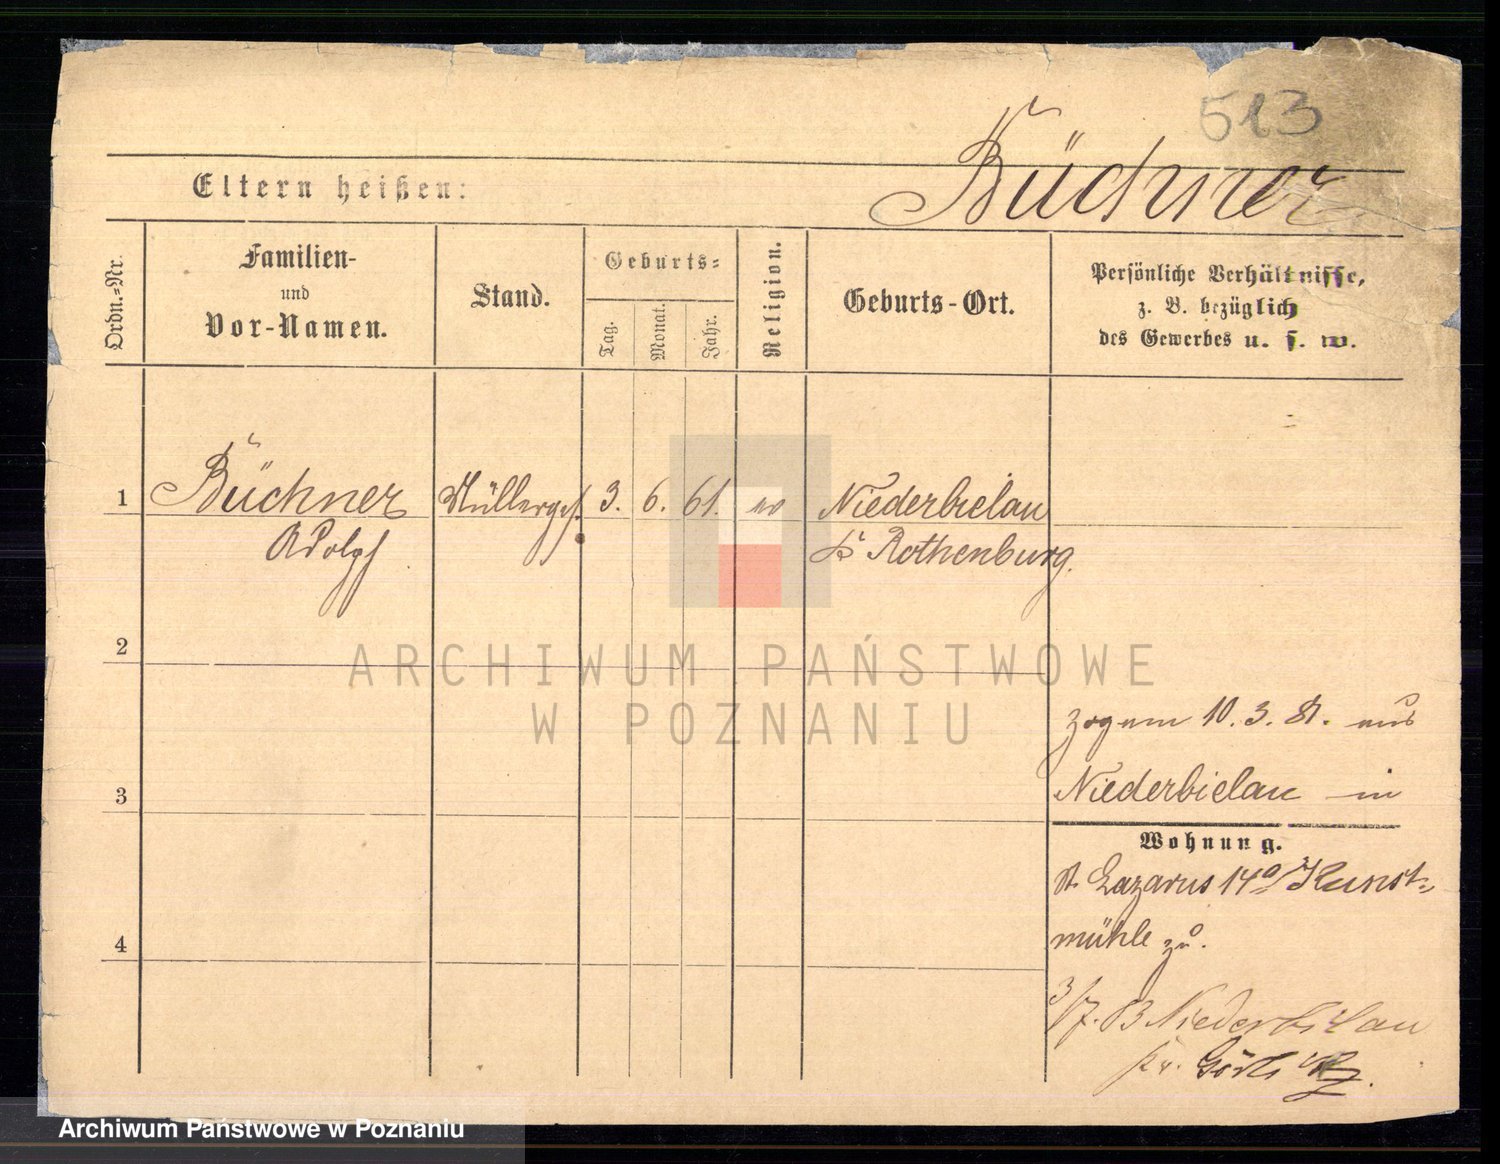 513
Büchner
Eltern heißen:
Ordn.-Nr.
Familien-
und
Vor-Namen.
Stand.
Geburts-
Tag.
Monat.
Jahr.
Religion.
Geburts-Ort.
Persönliche Verhältnisse,
z. B. bezüglich
des Gewerbes u. s. w.
1
Büchner
Adolph
Müllerges.
3.
6.
61.
ev
Niederbielau
Kr Rothenburg.
2
ARCHIWUM PAŃSTWOWE
W POZNANIU
zog am 10. 3. 81. aus
3
Niederbielau in
Wohnung.
St. Lazarus 14a/Kunst-
4
mühle zu.
3/7. 83 Niederbielau
Kr.
Archiwum Państwowe w Poznaniu